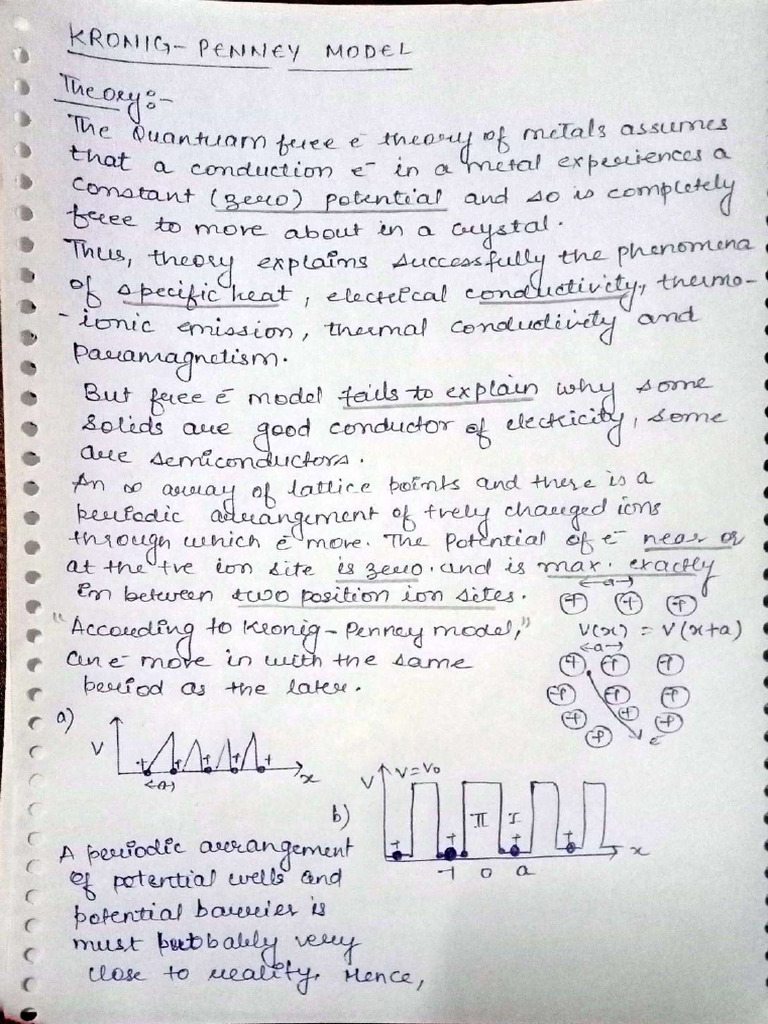 KRONIG-PENNEY MODEL
Theory:-
The Quantuam free e⁻ theory of metals assumes
that a conduction e⁻ in a metal experiences a
constant (zero) potential and so is completely
free to move about in a crystal.
Thus, theory explains successfully the phenomena
of specific heat, electrical conductivity, thermo-
-ionic emission, thermal conductivity and
Paramagnetism.
But free e⁻ model fails to explain why some
solids are good conductor of electricity, some
are semiconductors.
An ∞ array of lattice points and there is a
periodic arrangement of +vely charged ions
through which e⁻ move. The Potential of e⁻ near or
at the +ve ion site is zero. and is max. exactly
in between two position ion sites.
←a→
+ + +
"According to Kronig-Penney model,"
V(x) = V(x+a)
an e⁻ move in with the same
period as the later.
←a→
+ + +
+ + +
+ + +
+ e⁻
a)
V
+ + + + +
x
←a→
b)
V
V=V₀
II I
+ + + +
x
-1 0 a
A periodic arrangement
of potential wells and
potential barrier is
must probably very
close to reality. Hence,